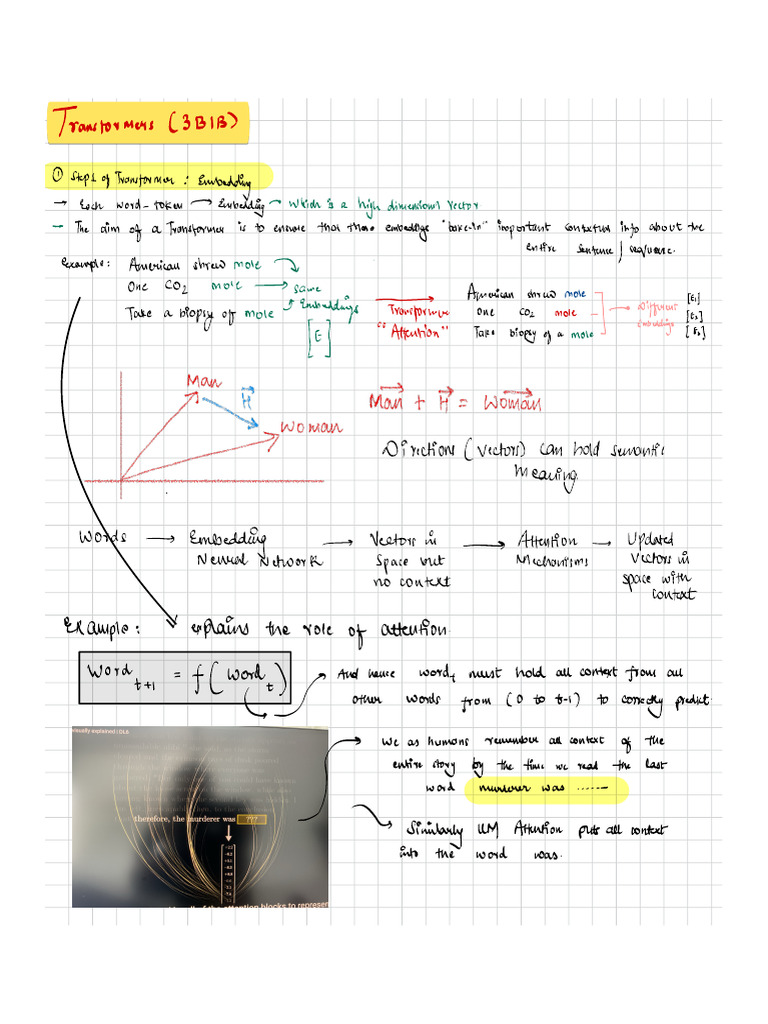 Transformers (3B1B)
① Step1 of Transformer : Embedding
→ Each word-token → Embedding → which is a high dimensional vector
- The aim of a Transformer is to ensure that these embeddings "bake-in" important contextual info about the
entire sentence / sequence.
Example: American shrew mole
One CO2 mole → same
Embeddings
Take a biopsy of mole
[E]
Transformer
"Attention"
American shrew mole
One CO2 mole
Take biopsy of a mole
Different
embeddings
[E1]
[E2]
[E3]
Man
H
Woman
Man + H = Woman
Directions (vectors) can hold semantic
meaning.
Words → Embedding → Vectors in → Attention → Updated
Neural Network
space but
no context
Mechanisms
vectors in
space with
context
Example: explains the role of attention.
Word t+1 = f(word t)
And hence word t must hold all context from all
other words from (0 to t-1) to correctly predict
We as humans remember all context of the
entire story by the time we read the last
word murderer was ......
Similarly LLM Attention puts all context
into the word was.
visually explained | DL6
therefore, the murderer was ???
of the attention blocks to represen